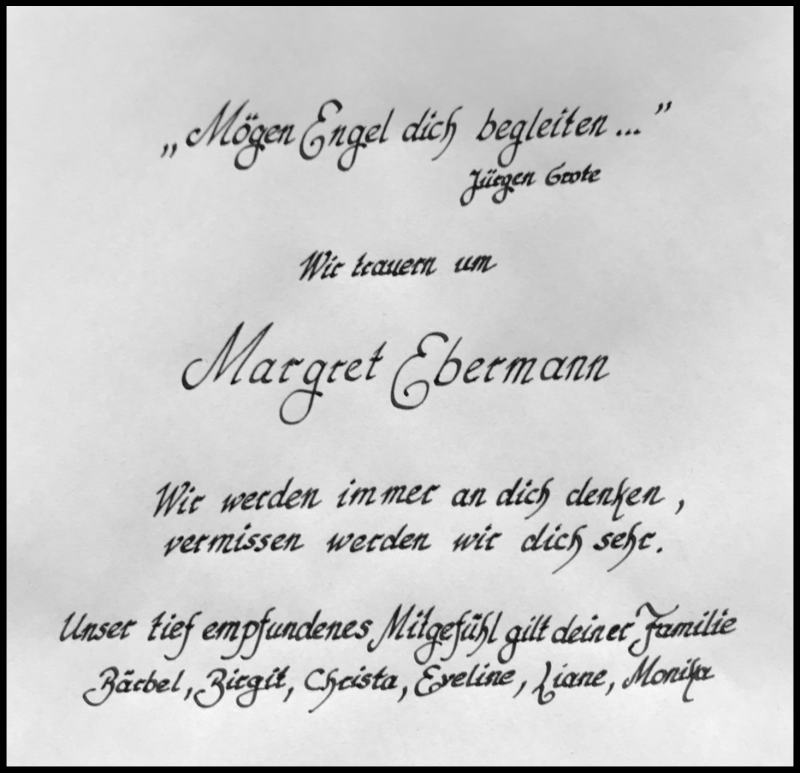 „Mögen Engel dich begleiten..."
Jürgen Grote
Wir trauern um
Margret Ebermann
Wir werden immer an dich denken,
vermissen werden wir dich sehr.
Unser tief empfundenes Mitgefühl gilt deiner Familie
Bärbel, Birgit, Christa, Eveline, Liane, Monika